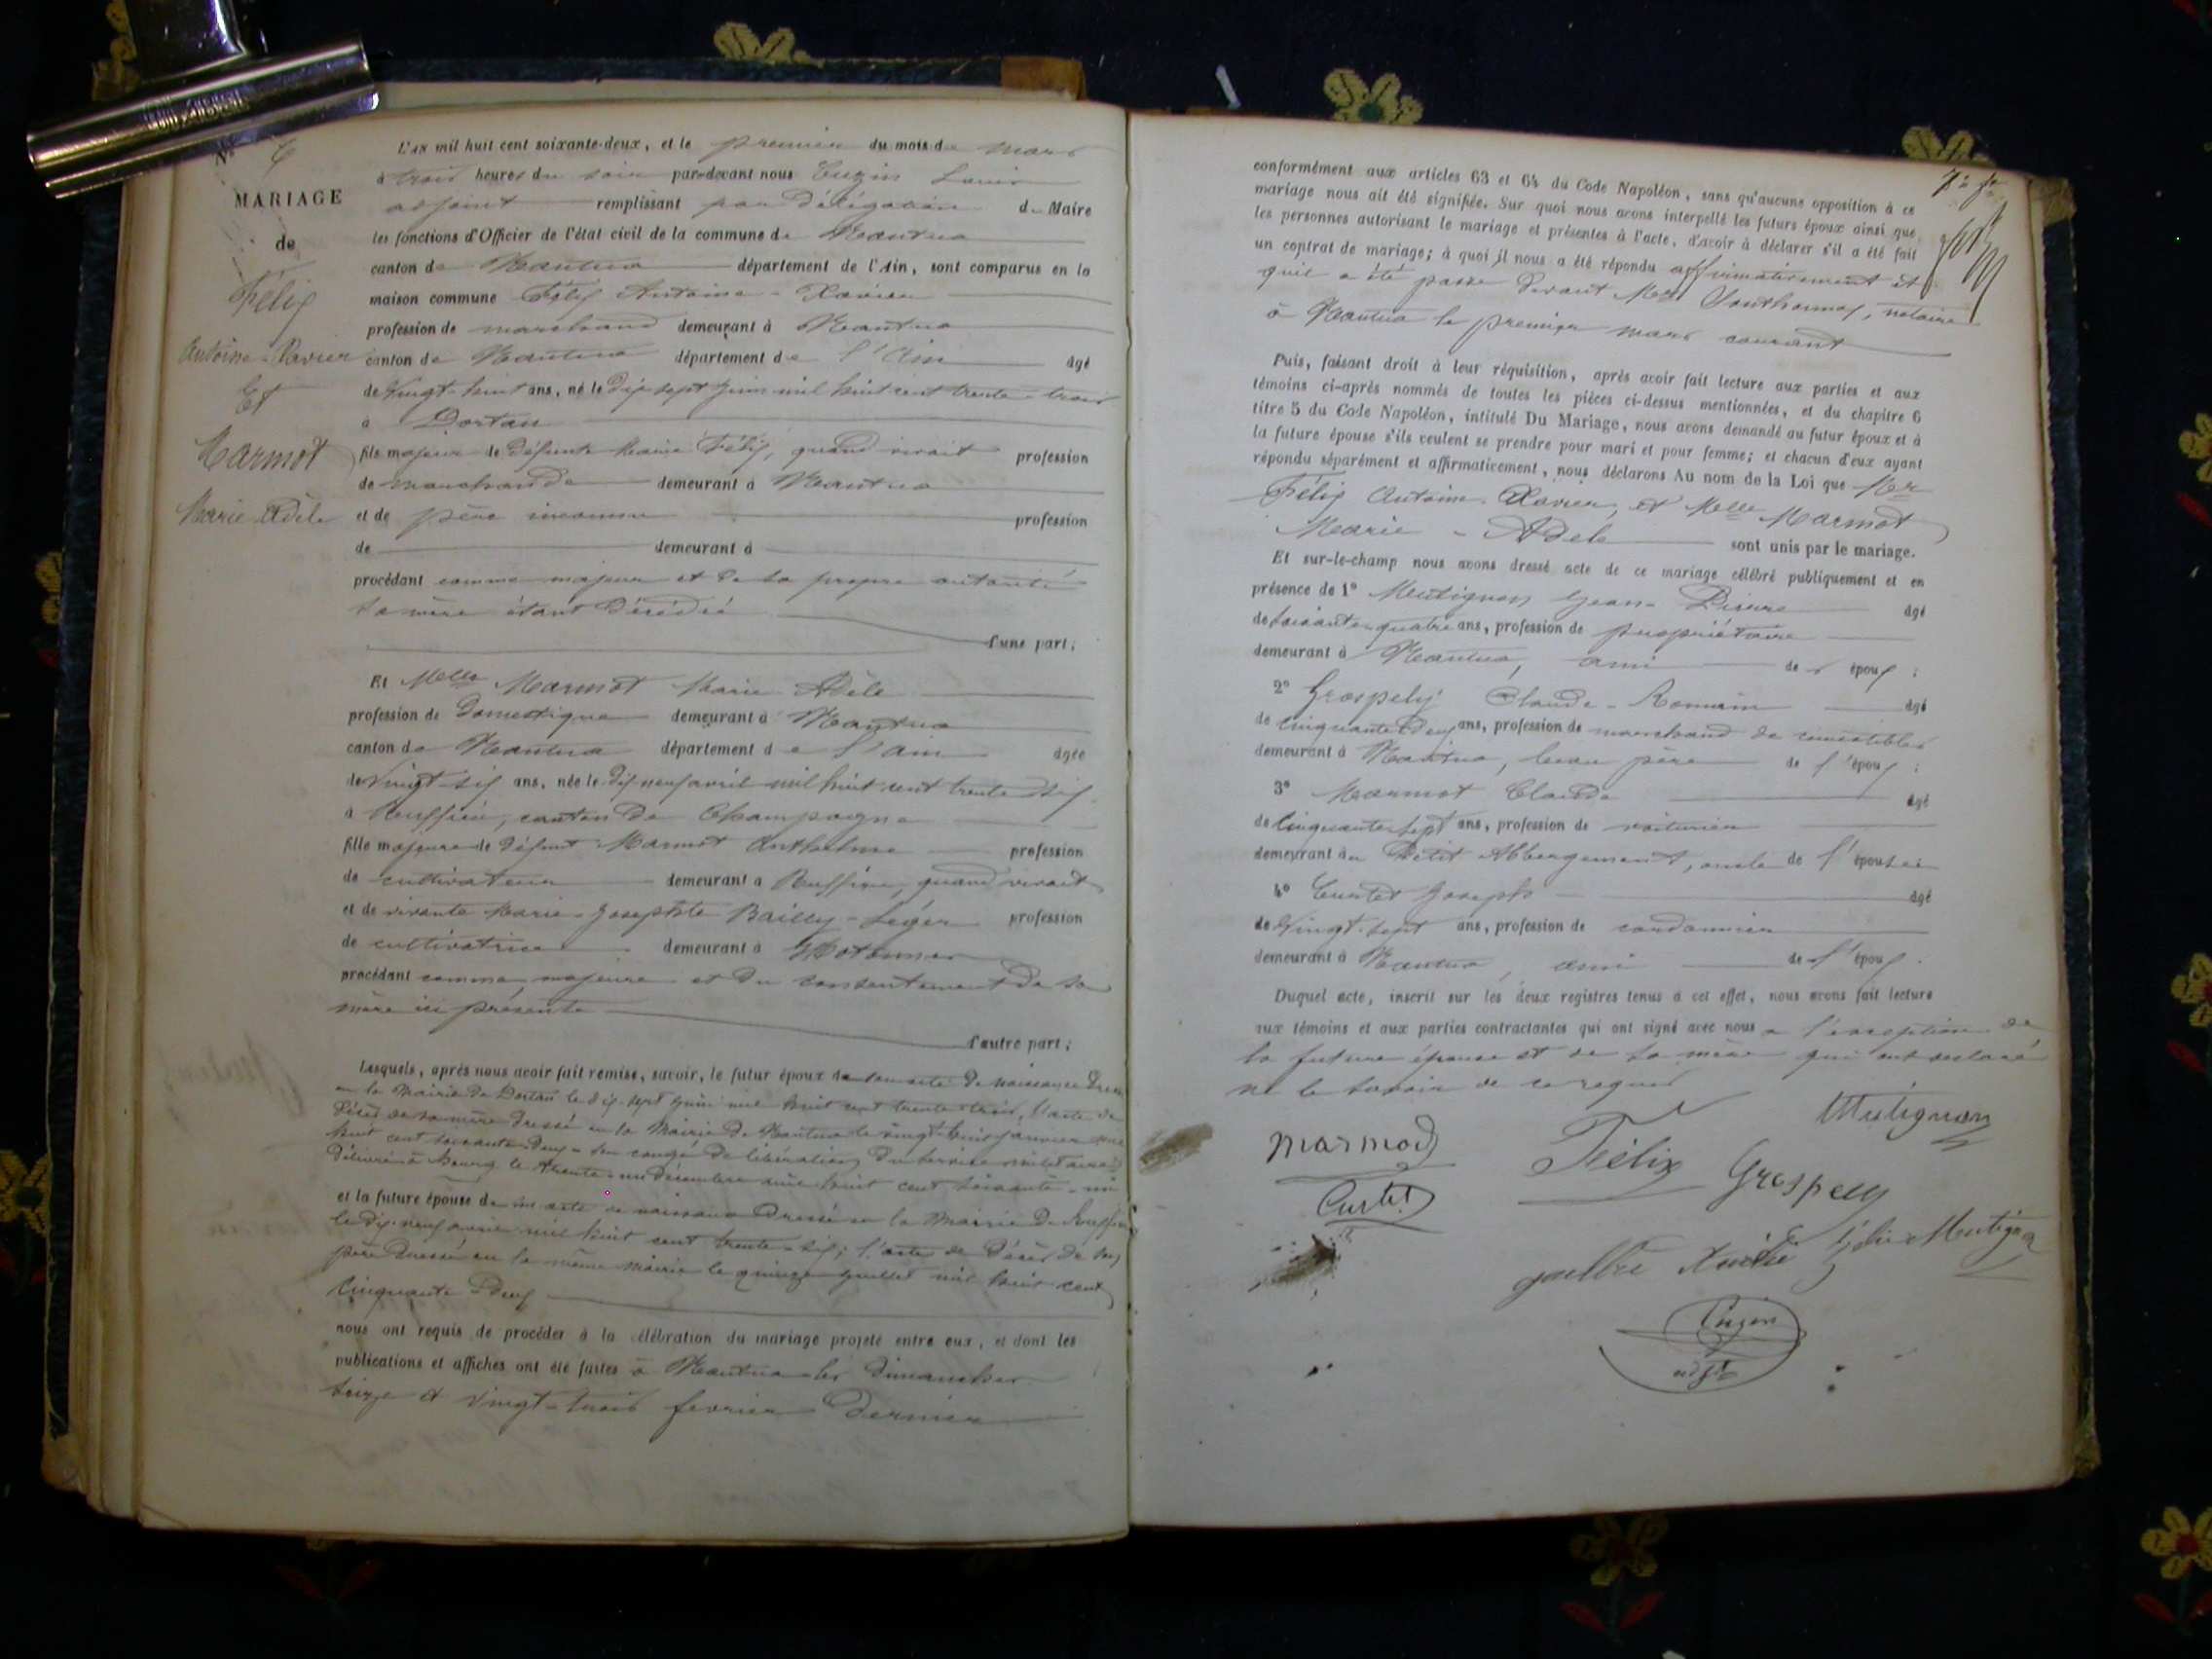 N° 6
MARIAGE
de
Félix
Antoine-Xavier
Et
Marmot
Marie Adèle
L'AN mil huit cent soixante-deux, et le premier du mois de mars
à trois heures du soir par-devant nous Cuzin Louis
adjoint remplissant par délégation du Maire
les fonctions d'Officier de l'état civil de la commune de Nantua
canton de Nantua département de l'Ain, sont comparus en la
maison commune Félix Antoine-Xavier
profession de marchand demeurant à Nantua
canton de Nantua département de l'Ain âgé
de Vingt-huit ans, né le dix sept juin mil huit cent trente-trois
à Dortan
fils majeur de défunte Marie Félix, quand vivait profession
de marchande demeurant à Nantua
et de père inconnu profession
de demeurant à
procédant comme majeur et de sa propre autorité
sa mère étant décédée
d'une part;
Et Melle Marmot Marie Adèle
profession de domestique demeurant à Nantua
canton de Nantua département de l'ain âgée
de Vingt-six ans, née le dix neuf avril mil huit cent trente six
à Ruffieu, canton de Champagne
fille majeure de défunt Marmot Anthelme profession
de cultivateur demeurant à Ruffieu, quand vivait
et de vivante Marie-Josephte Bailly-Léger profession
de cultivatrice demeurant à Hotonnes
procédant comme majeure et du consentement de sa
mère ici présente
d'autre part;
Lesquels, après nous avoir fait remise, savoir, le futur époux de son acte de naissance dressé
en la Mairie de Dortan le dix-sept juin mil huit cent trente-trois, l'acte de
décès de sa mère dressé en la Mairie de Nantua le vingt-huit janvier mil
huit cent soixante-deux - son congé de libération du service militaire
délivré à Bourg le trente-un décembre mil huit cent soixante-un
et la future épouse de son acte de naissance dressé en la Mairie de Ruffieu
le dix-neuf avril mil huit cent trente-six; l'acte de décès de son
père dressé en la même mairie le quinze juillet mil huit cent
cinquante deux
nous ont requis de procéder à la célébration du mariage projeté entre eux, et dont les
publications et affiches ont été faites à Nantua les dimanches
seize et vingt-trois février dernier
conformément aux articles 63 et 64 du Code Napoléon, sans qu'aucune opposition à ce
mariage nous ait été signifiée. Sur quoi nous avons interpellé les futurs époux ainsi que
les personnes autorisant le mariage et présentes à l'acte, d'avoir à déclarer s'il a été fait
un contrat de mariage; à quoi il nous a été répondu affirmativement et
qu'il a été passé devant Me , notaire
à Nantua le premier mars courant
Puis, faisant droit à leur réquisition, après avoir fait lecture aux parties et aux
témoins ci-après nommés de toutes les pièces ci-dessus mentionnées, et du chapitre 6
titre 5 du Code Napoléon, intitulé Du Mariage, nous avons demandé au futur époux et à
la future épouse s'ils veulent se prendre pour mari et pour femme; et chacun d'eux ayant
répondu séparément et affirmativement, nous déclarons Au nom de la Loi que Mr
Félix Antoine-Xavier, et Melle Marmot
Marie-Adèle sont unis par le mariage.
Et sur-le-champ nous avons dressé acte de ce mariage célébré publiquement et en
présence de 1° Mutignon Jean-Pierre âgé
de soixante-quatre ans, profession de propriétaire
demeurant à Nantua, ami des époux;
2° Grospely Claude-Romain âgé
de cinquante deux ans, profession de marchand de comestibles
demeurant à Nantua, beau père de l'époux;
3° Marmot Claude âgé
de cinquante sept ans, profession de voiturier
demeurant au Petit Abbergement, oncle de l'épouse
4° Curtet Joseph âgé
de Vingt-sept ans, profession de cordonnier
demeurant à Nantua, ami de l'époux.
Duquel acte, inscrit sur les deux registres tenus à cet effet, nous avons fait lecture
aux témoins et aux parties contractantes qui ont signé avec nous à l'exception de
la future épouse et de sa mère qui ont déclaré
ne le savoir de ce requis
Mutignon
Marmod
Félix
Grospely
Curtet
Félix Mutignon
Cuzin
adjt